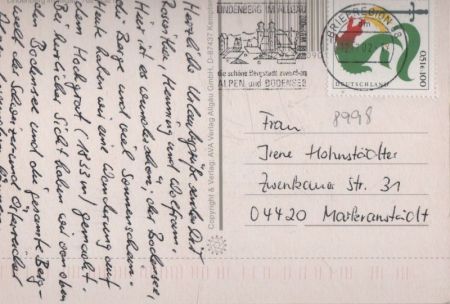 Herzliche Urlaubsgrüße senden Dir
Roswitha, Henning und Wolfram.
Hier ist es wunderschön, der Bodensee,
die Berge und viel Sonnenschein.
Heute haben wir eine Wanderung auf
dem Hochgrat (1833 m) gemacht.
Bei herrlicher Sicht haben wir von oben
den Bodensee und die gesamte Berg-
welt der Schweizer und Österreicher
Copyright & Verlag: AVA Verlag Allgäu GmbH, D-87437 Kempten
LINDENBERG IM ALLGÄU
die schöne Bergstadt zwischen
ALPEN und BODENSEE
BRIEFREGION 8
DEUTSCHLAND
0,51€ 100
8998
Frau
Irene Hohnstädter
Zwenkauer Str. 31
04420 Markranstädt